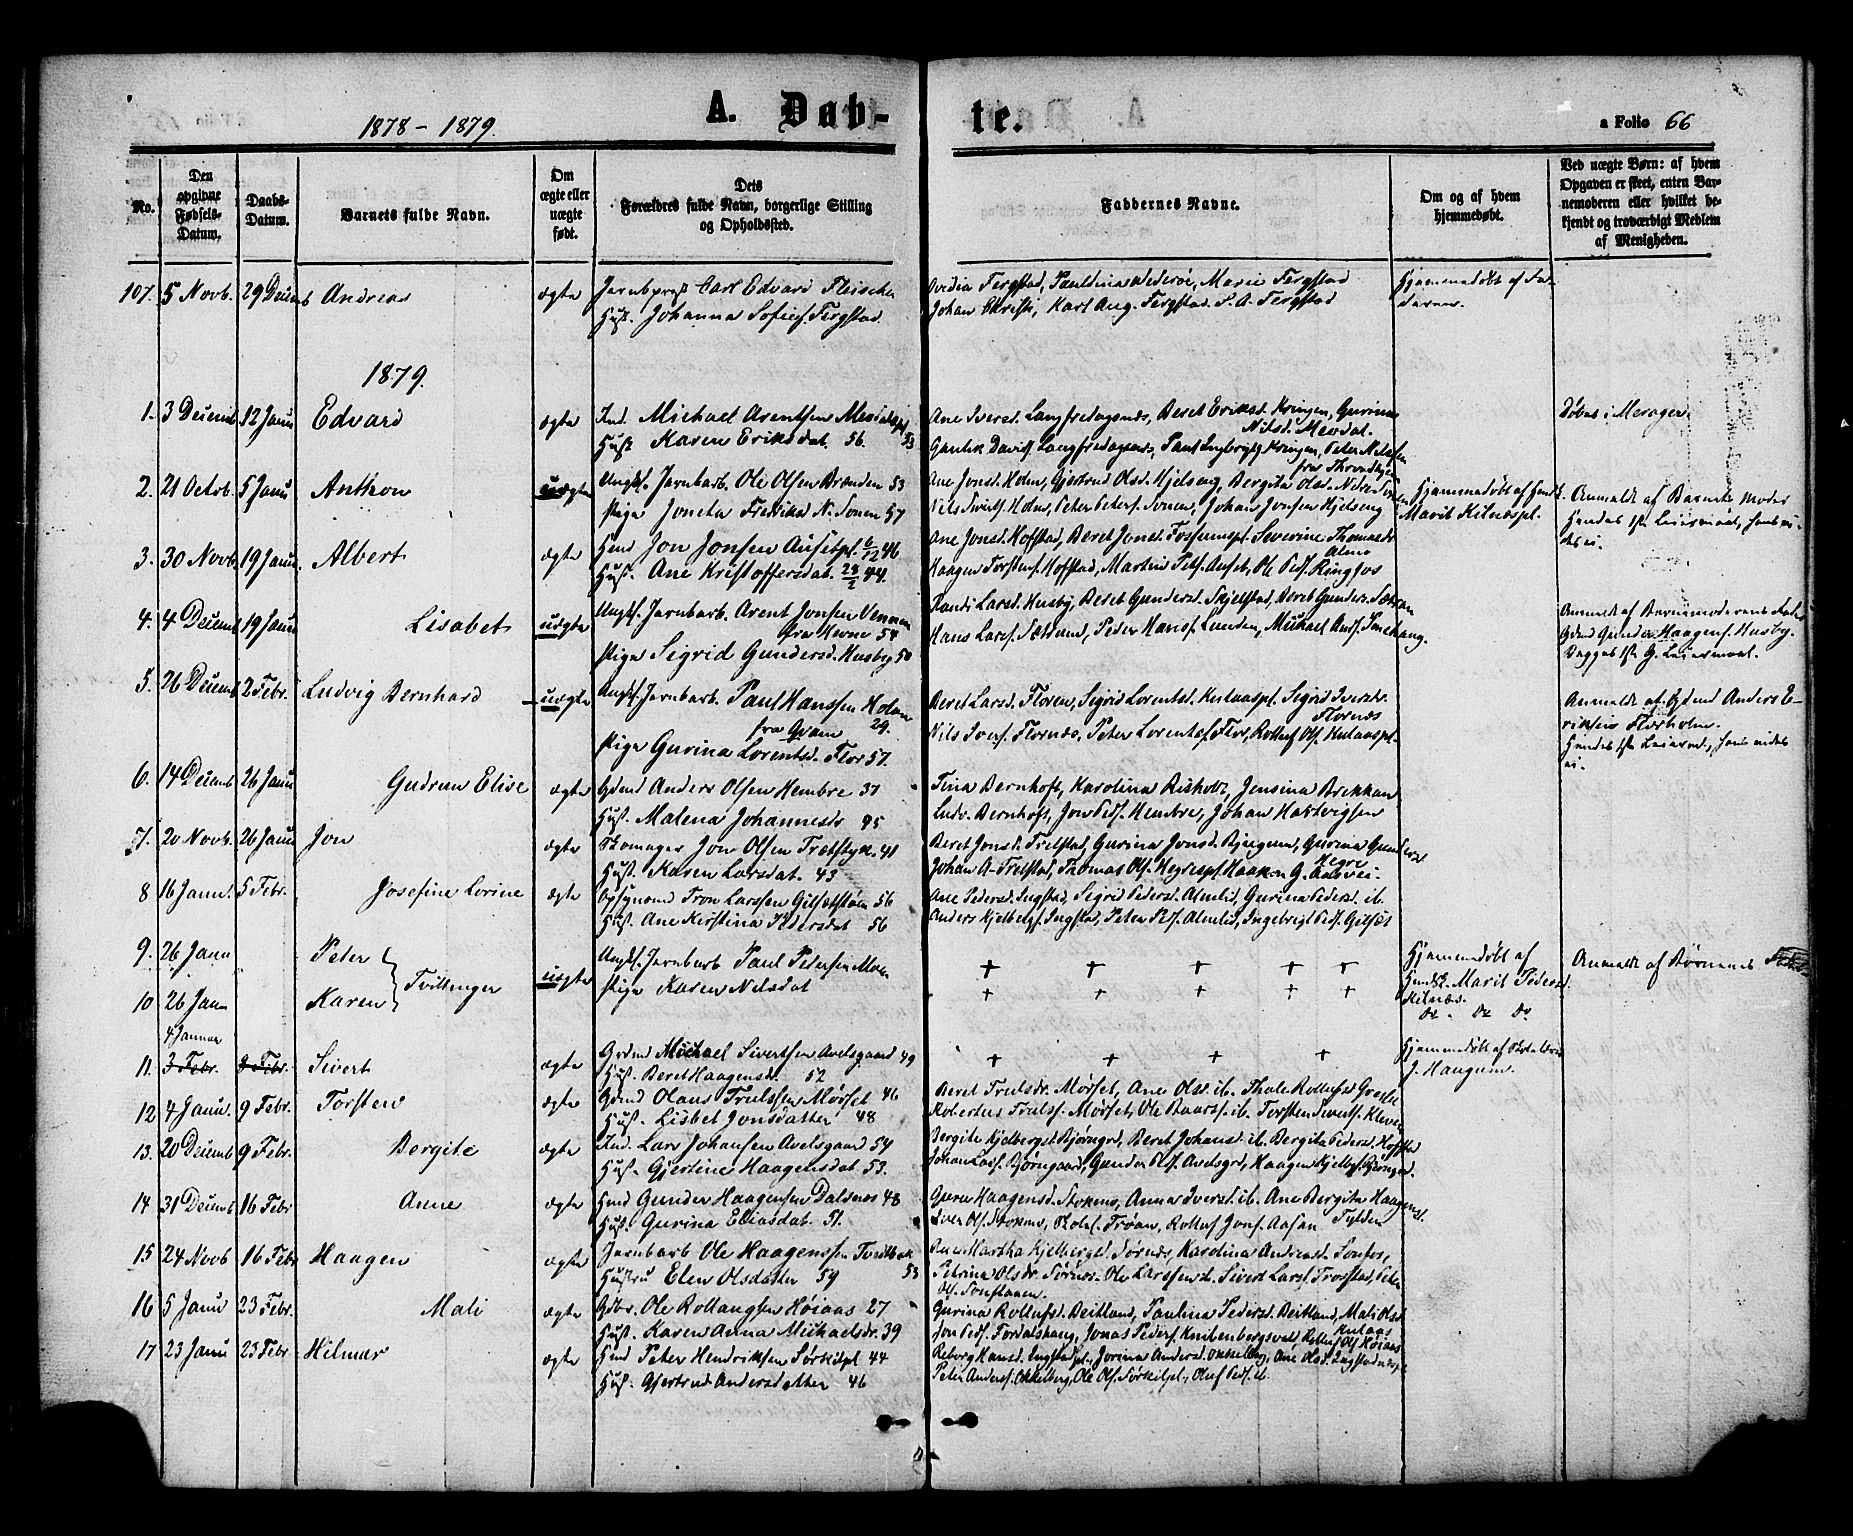 1878 - 1879.
A. Døb-
te.
a Folio 66
No.
Den opgivne Fødsels-Datum.
Daabs-Datum.
Barnets fulde Navn.
Om ægte eller uægte født.
Dets Forældres fulde Navn, borgerlige Stilling og Opholdssted.
Faddernes Navne.
Om og af hvem hjemmedøbt.
Ved uægte Børn: af hvem Opgaven er skeet, enten Barnemoderen eller hvilket bekjendt og troværdigt Medlem af Menigheden.
107. 5 Novb. 29 Decemb Andreas ægte Carl Edvard Fleischer
Hust. Johanna Sofies. Fergstad.
Ovidia Fergstad, Paulina Marie Fergstad
Johan Christi, Karl Aug. Fergstad. P. A. Fergstad
Hjemmedøbt af Fa-
deren.
1879.
1. 3 Decemb 12 Janu Edvard ægte Ind. Michael Arentsen 53
Hust Karen Eriksdat. 56.
Ane Iversd. Langfredagsnes, Beret Eriksd. Kringen, Gurine
Nilsd. Meedal.
Davids. Paul Ingbrigts Kringen, Peter Nilsen
fra Throndhjem
Døbt i Merager
2. 21 Octob. 5 Janu Anthon uægte Ungk. Jarnbarb. Ole Olsen Brenden 53
Pige Joneta Fredriksd. N. Sonen 57
Ane Jonsd. Holm, Gjertrud Olsd. Hjelseng, Bergite Olsd. Nedre Sonen
Nils Siverts. Holm, Peter Peters. Sonen, Johan Jonsen Hjelseng
Hjemmedøbt af
Marit Kilnespl.
Anmeldt af Barnets Moder
Hendes 1ste Leiermaal, hans vi-
des ei.
3. 30 Novb. 19 Janu Albert ægte Hmd Jon Jonsen Ausetpl. 6/12 46
Hust. Ane Kristoffersdat. 28/2 44.
Ane Jonsd. Hofstad, Beret Jonsd. Fossumspl. Severine Thomasdr.
Almo
Haagen Torstens. Hofstad, Martin Peds. Auset, Ole Peds. Ringfos
4. 4 Decemb 19 Janu Lisabet uægte Ungk. Jarnbarb. Arent Jonsen Vennen
fra Hevne 54
Pige Sigrid Gundersd. Husby 50
Randi Larsd. Husby, Beret Gundersd. Skjelstad, Beret Gunders.
Hans Lars. Peder Hans. Lunden, Mikael
Anmeldt af Barnemoderens Fader
Gdmd Gunder Haagens. Husby.
Begges 1ste G. Leiermaal.
5. 26 Decemb 2 Febr. Ludvig Bernhard uægte Ungk. Jarnbarb. Paul Hanssen Holan
fra Qvam 29.
Pige Gurina Lorentsd. Flor 57.
Beret Larsd. Floren, Sigrid Lorentsd. Kulaaspl. Sigrid Iversdr.
Flornæs
Nils Ivers. Flornæs, Peter Lorents. Flor, Rolluf Ols. Kulaaspl.
Anmeldt af Gdmd Anders E-
riksen Florholm.
Hendes 1ste Leierml, hans vides
ei.
6. 14 Decemb 26 Janu Gudrun Elise ægte Gdmd Anders Olsen Hembre 37
Hust. Malena Johannesdr 45
Tina Bernhoft, Karolina Risholt, Jensina Brekkan
Ludv. Bernhoft, Jon Peds. Hembre, Johan Hartvigsen
7. 20 Novb. 26 Janu Jon ægte Skomager Jon Olsen 41
Hust. Karen Larsdat. 43
Beret Jonsd. Trelstad, Gurina Jonsd. Bjugum, Gurina Gundersd
Hegre
Johan A. Trelstad, Thomas Ols. Hegrespl. Haakon G.
8 16 Janu. 5 Febr. Josefine Lorine ægte Opsynsmd Tron Larssen Gilsetstøen 56
Hust. Ane Kirstina Pedersdat 56
Ane Pedersd. Ingstad, Sigrid Pedersd. Almlid, Gurina Pedersd. ib.
Anders Kjelbergs. Ingstad, Peter Peds. Almlid, Ingebrigt Peds. Gilset
9. 26 Janu Peter
Tvillinger uægte
10 26 Janu Karen
Ungk. Jarnbarb Paul Pedersen Moen
Pige Karen Nilsdat
+ + + + +
+ + + + +
Hjemmedøbt af
Marit Pedersd.
Kilnes.
Do. Do Do
Anmeldt af Børnenes
4 Januar
11. 3 Febr. 9 Febr. Sivert ægte Gdmd Michael Sivertsen Avelsgaard 49
Hust. Beret Haagensdr. 52
+ + + +
Hjemmedøbt af
J. Haugum.
12 4 Janu. 9 Febr. Torsten ægte Gdmd Olaus Trulssen Mørset 46
Hust. Lisbet Jonsdatter 48
Beret Trulsdr. Mørset, Ane Olsd. ib. Thale Rollufsd Gresli
Robertus Truls. Mørset, Ole Baars. ib. Torsten Siverts. Kleven
13. 20 Decemb 9 Febr. Bergite ægte Ind. Lars Johansen Avelsgaard 54
Hust. Gjertine Haagensdat. 53.
Bergite Kjelbergsd Bjørngrd, Beret Johansd. ib. Bergite Pedersd. Hofstad
Johan Lars. Bjørngaard, Gunder Avelsgrd, Haagen Kjelbgs. Bjørngrd.
14 31 Decemb 16 Febr Anne ægte Hmd Gunder Haagensen Dalsnes 48
Hust. Gurina Eliasdat. 51.
Guru Haagensd. Stokmo, Anna Iversd. ib. Ane Bergite Haagensd.
Iver Ols. Stokmo, Trøan, Rolluf Jons. Aasan Fylden
15 24 Novb 16 Febr Haagen ægte Jarnbarb Ole Haagenssen 53
Hustru Elen Olsdatter 59
Martha Kjelbergsd. Sørnes, Karolina Andreasd. Sonfos,
Petrina Olsdr. Sørnes. Ole Larssen Sivert Lars. Trosstad, Peter
Ols. Sonstaaen.
16 5 Janu 23 Febr. Mali ægte Gdbr. Ole Rollaugsen Høiaas 27
Hust. Karen Anna Michaelsdr. 39
Gurina Rollufsd. Beitland, Paulina Pedersd. Beitland, Mali Olsd
Kulaas
Jon Peds. Fordalshaug, Jonas Peders. Rolluf Ols. Høiaas
17 23 Janu 23 Febr. Hilmar ægte Hmd Peter Hendriksen Sørkilpl 44
Hust. Gjertrud Andersdatter 46
Reborg Hansd. Ingstadpl., Jorina Andersd. Okkelberg, Ane Olsd. Ingstadnespl
Peter Anders. Okkelberg, Ole Ols. Sørkilpl., Oluf Peds. ib.